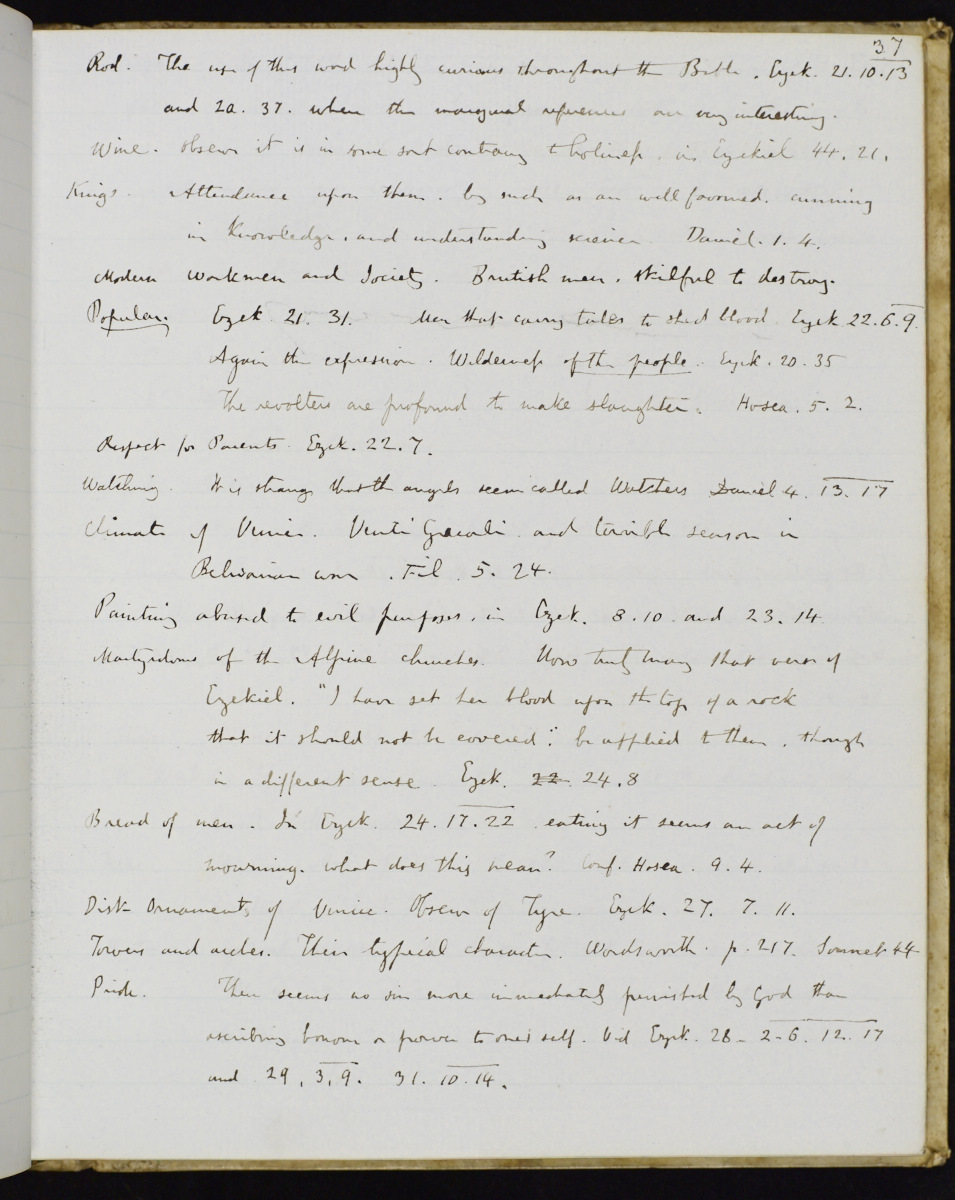 37
Rod. The use of this word highly curious throughout the Bible. Ezek. 21. 10. 13
and 20. 37. where the marginal references are very interesting.
Wine. observe it is in some sort contrary to holiness. in Ezekiel 44. 21.
Kings. Attendance upon them. by such as are well favoured. cunning
in Knowledge. and understanding science. Daniel. 1. 4.
Modern workmen and Society. Brutish men. skilful to destroy.
Popular. Ezek. 21. 31. Men that carry tales to shed blood. Ezek 22. 6. 9.
Again the expression. Wilderness of the people. Ezek. 20. 35
The revolters are profound to make slaughter. Hosea. 5. 2.
Respect for Parents. Ezek. 22. 7.
Watching. It is strange that the angels seem called Watchers Daniel 4. 13. 17
Climate of Venice. Venti Grecali. and terrible season in
war. Fil. 5. 24.
Painting abused to evil purposes. in Ezek. 8. 10 and 23. 14
Martyrdoms of the Alpine churches. How truly may that verse of
Ezekiel. "I have set her blood upon the top of a rock
that it should not be covered": be applied to them. though
in a different sense. Ezek. 22. 24. 8
Bread of men. In Ezek. 24. 17. 22 eating it seems an act of
mourning. what does this mean? Conf. Hosea. 9. 4.
Disk Ornaments of Venice. Observe of Tyre. Ezek. 27. 7. 11.
Towers and arches. Their typical character. Wordsworth. p. 217. Sonnet 44
Pride. There seems no sin more immediately punished by God than
ascribing honour or power to one's self. Vid Ezek. 28 - 2-6. 12. 17
and 29. 3. 9. 31. 10. 14.